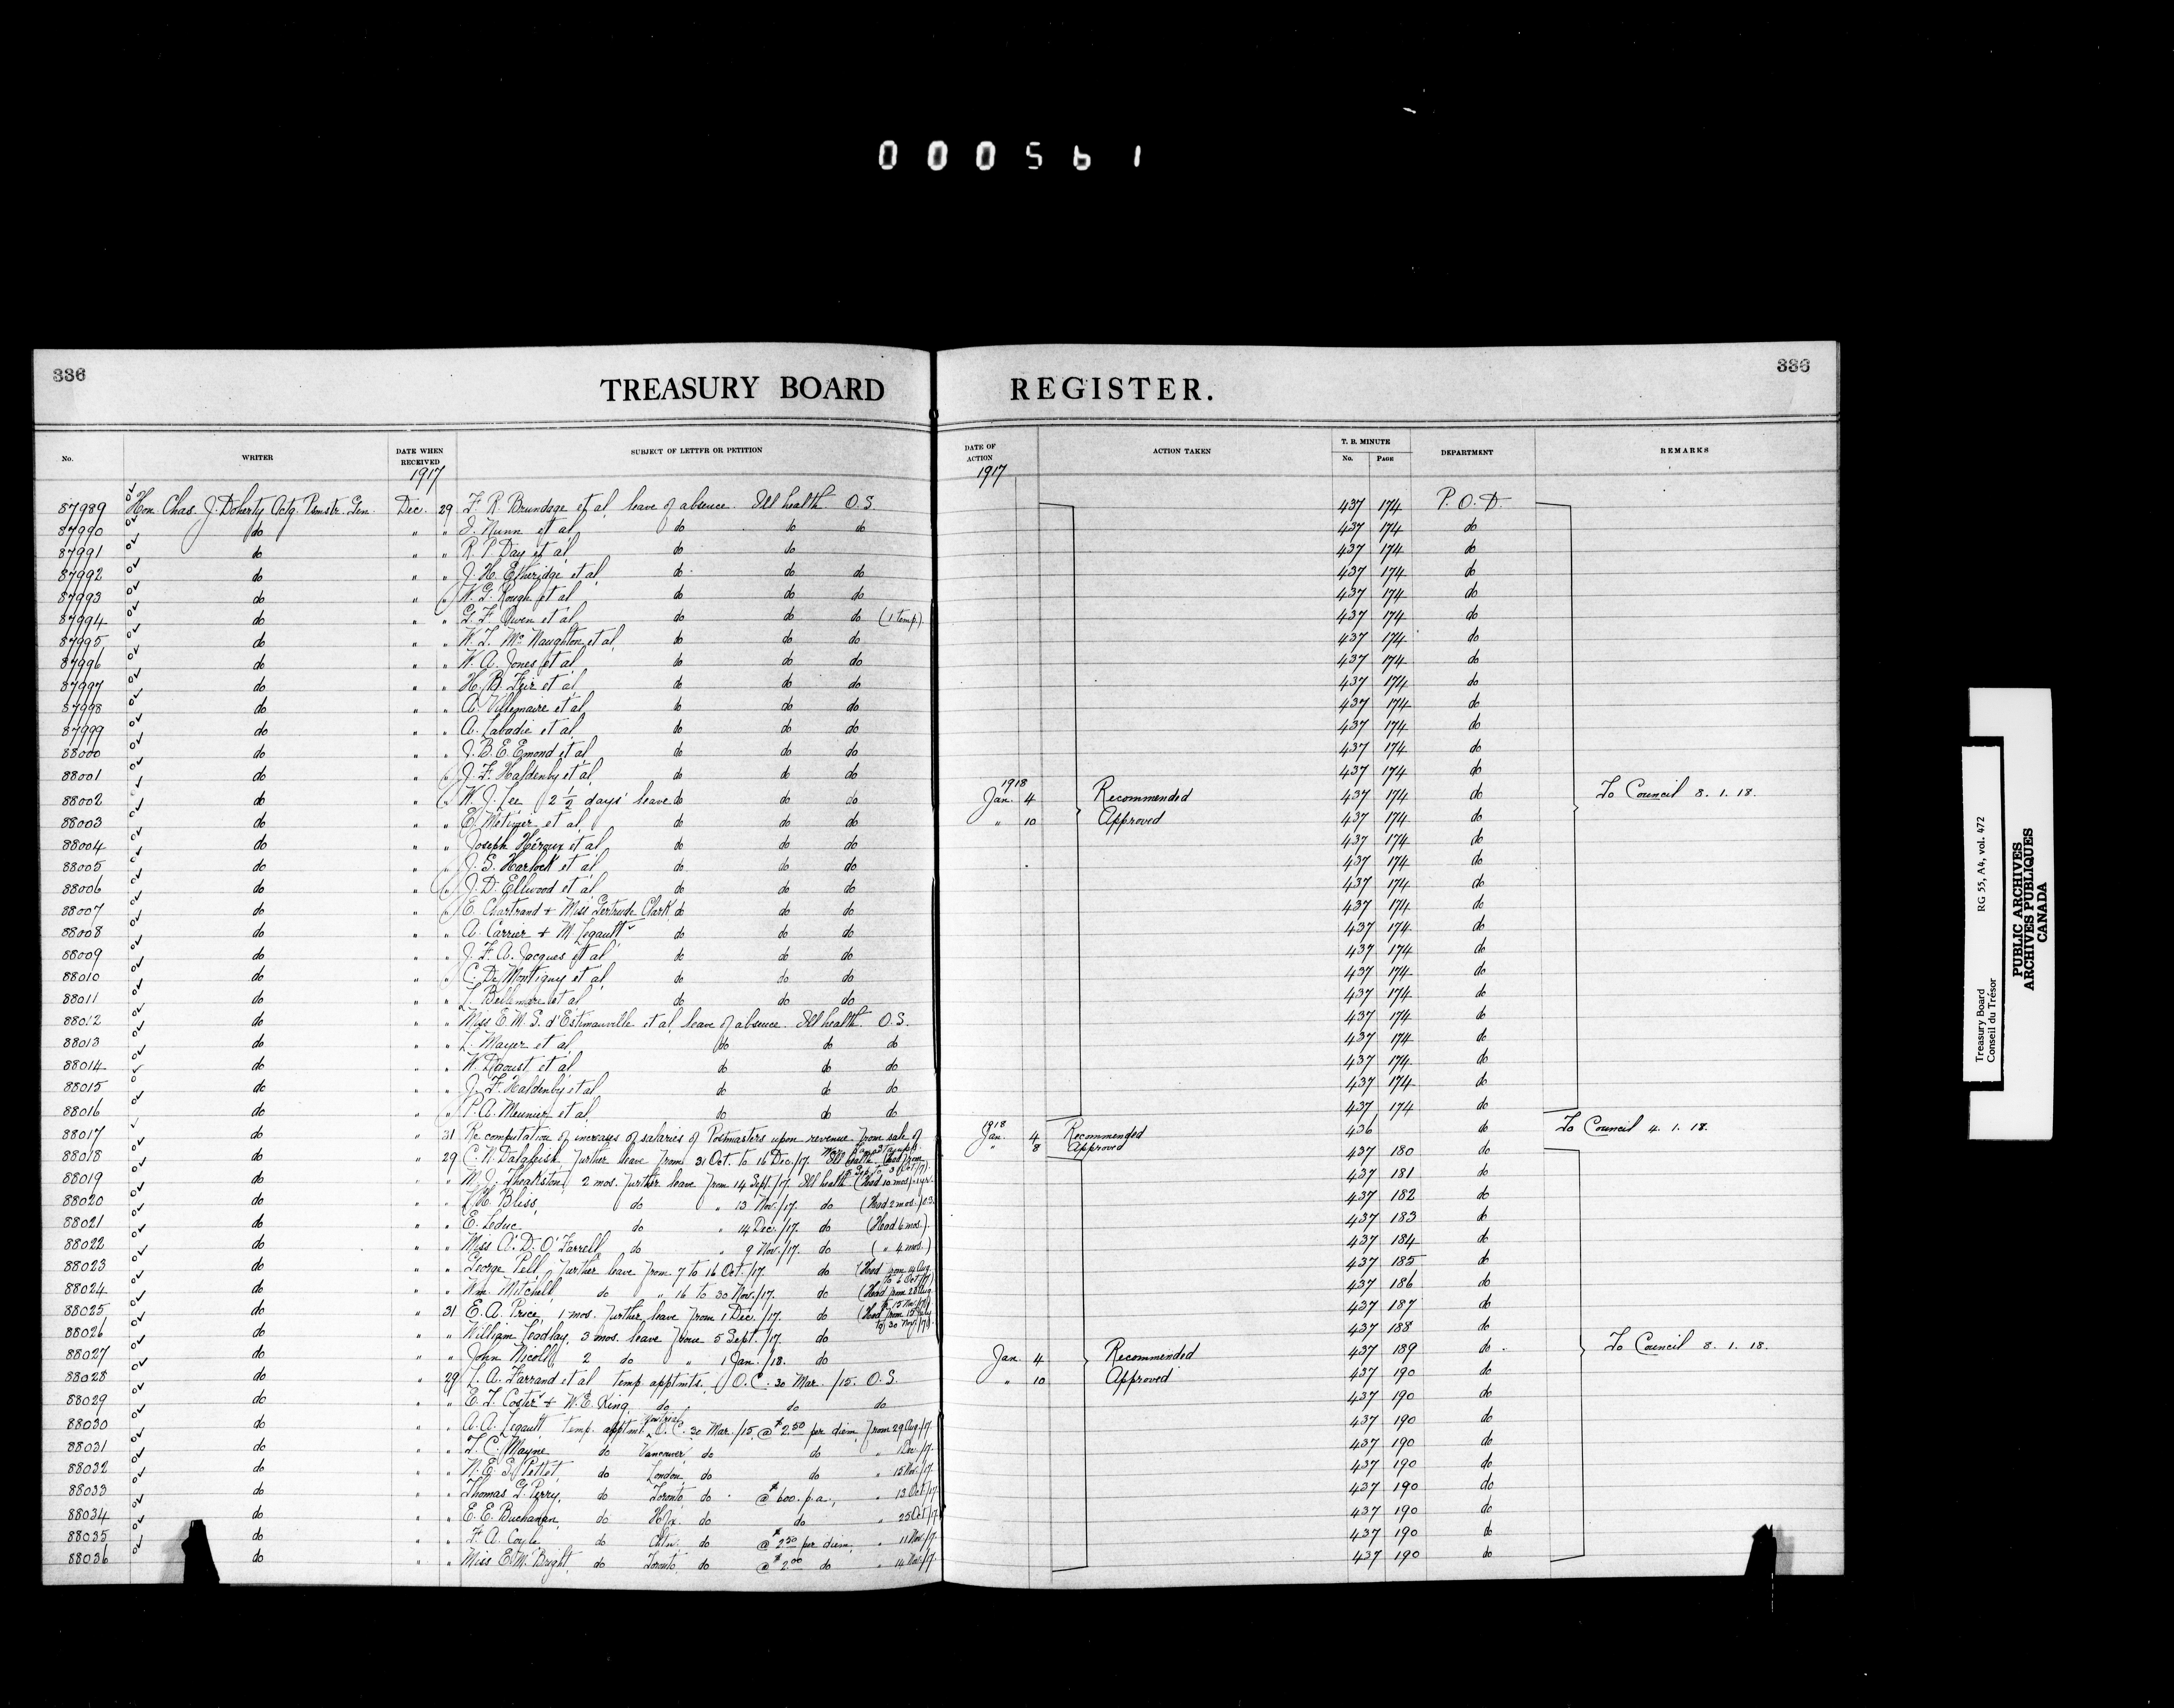 000561
336
336
TREASURY BOARD REGISTER.
No. WRITER DATE WHEN RECEIVED SUBJECT OF LETTER OR PETITION DATE OF ACTION ACTION TAKEN T. B. MINUTE No. PAGE DEPARTMENT REMARKS
1917 1917
87989 Hon. Chas. J. Doherty Actg. Pmstr. Gen. Dec. 29 F. R. Brundage et al, leave of absence. Ill health. O.S. 437 174 P.O.D.
87990 do " " J. Nunn et al, do do do 437 174 do
87991 do " " R. P. Day et al, do do 437 174 do
87992 do " " J. H. Etheridge et al, do do do 437 174 do
87993 do " " W. G. Rough et al do do do 437 174 do
87994 do " " G. F. Owen et al, do do do (1 temp) 437 174 do
87995 do " " W. L. McNaughton et al, do do do 437 174 do
87996 do " " W. A. Jones et al, do do do 437 174 do
87997 do " " H. B. Feir et al do do do 437 174 do
87998 do " " A. Villemaire et al, do do do 437 174 do
87999 do " " A. Labadie et al, do do do 437 174 do
88000 do " " J. B. E. Emond et al, do do do 437 174 do
88001 do " " J. F. Haldenby et al, do do do 437 174 do
88002 do " " W. J. Lee 2 1/2 days' leave do do do 1918 Jan. 4 Recommended 437 174 do To Council 8. 1. 18.
88003 do " " E. Metivier et al, do do do " 10 Approved 437 174 do
88004 do " " Joseph Héroux et al do do do 437 174 do
88005 do " " J. S. Harlock et al do do do 437 174 do
88006 do " " J. D. Ellwood et al, do do do 437 174 do
88007 do " " E. Chartrand + Miss Gertrude Clark, do do do 437 174 do
88008 do " " A. Carrier + M. Legault do do do 437 174 do
88009 do " " J. F. A. Jacques et al do do do 437 174 do
88010 do " " C. De Montigny et al, do do do 437 174 do
88011 do " " L. Bellemare et al do do do 437 174 do
88012 do " " Miss E. M. S. d'Estimauville et al, leave of absence. Ill health. O.S. 437 174 do
88013 do " " L. Mayer et al, do do do 437 174 do
88014 do " " W. Daoust et al, do do do 437 174 do
88015 do " " J. F. Haldenby et al do do do 437 174 do
88016 do " " P. A. Meunier et al do do do 437 174 do
88017 do " 31 Re computation of increases of salaries of Postmasters upon revenue from sale of 1918 Jan. 4 Recommended 436 do To Council 4. 1. 18.
88018 do " 29 C. N. Dalgleish, further leave from 31 Oct. to 16 Dec./17. Ill health " 8 Approved 437 180 do
88019 do " " M. J. Theakston, 2 mos. further leave from 14 Sept./17. Ill health (Had 10 mos) 437 181 do
88020 do " " H. Bliss, do " 13 Nov./17. do (Had 2 mos.) 437 182 do
88021 do " " E. Leduc do " 14 Dec./17. do (Had 6 mos.) 437 183 do
88022 do " " Miss A. D. O'Farrell, do " 9 Nov./17. do ( " 4 mos.) 437 184 do
88023 do " " George Pell, further leave from 7 to 16 Oct./17. do (Had from 14 Aug. to 6 Oct/17) 437 185 do
88024 do " " Wm. Mitchell do " 16 to 30 Nov./17. do (Had from 28 Aug. to 15 Nov/17) 437 186 do
88025 do " 31 E. A. Price, 1 mos. further leave from 1 Dec./17. do (Had from 15 July to 30 Nov./17) 437 187 do
88026 do " " William Leadlay, 3 mos. leave from 5 Sept./17. do 437 188 do
88027 do " " John Nicoll 2 do " 1 Jan./18. do Jan. 4 Recommended 437 189 do To Council 8. 1. 18.
88028 do " 29 L. A. Farrand et al temp. apptmts. O.C. 30 Mar./15. O.S. " 10 Approved 437 190 do
88029 do " " E. L. Coster + W. E. King, do do do 437 190 do
88030 do " " A. A. Legault, temp. apptmt. Montreal, O.C. 30 Mar./15. @ $2.50 per diem, from 29 Aug/17. 437 190 do
88031 do " " T. C. Mayne do Vancouver, do do " 1 Dec./17. 437 190 do
88032 do " " N. E. S. Pettet, do London, do do " 15 Nov./17. 437 190 do
88033 do " " Thomas G. Perry, do Toronto, do @ $600. p.a., " 13 Oct/17. 437 190 do
88034 do " " E. E. Buchanan, do Hfx. do do " 25 Oct/17. 437 190 do
88035 do " " F. A. Coyle do do @ $2.50 per diem, " 11 Nov./17. 437 190 do
88036 do " " Miss E. M. Bright, do Toronto, do @ $2.00 do " 14 Nov./17. 437 190 do
Treasury Board RG 55, A4, vol. 472
Conseil du Trésor
PUBLIC ARCHIVES
ARCHIVES PUBLIQUES
CANADA